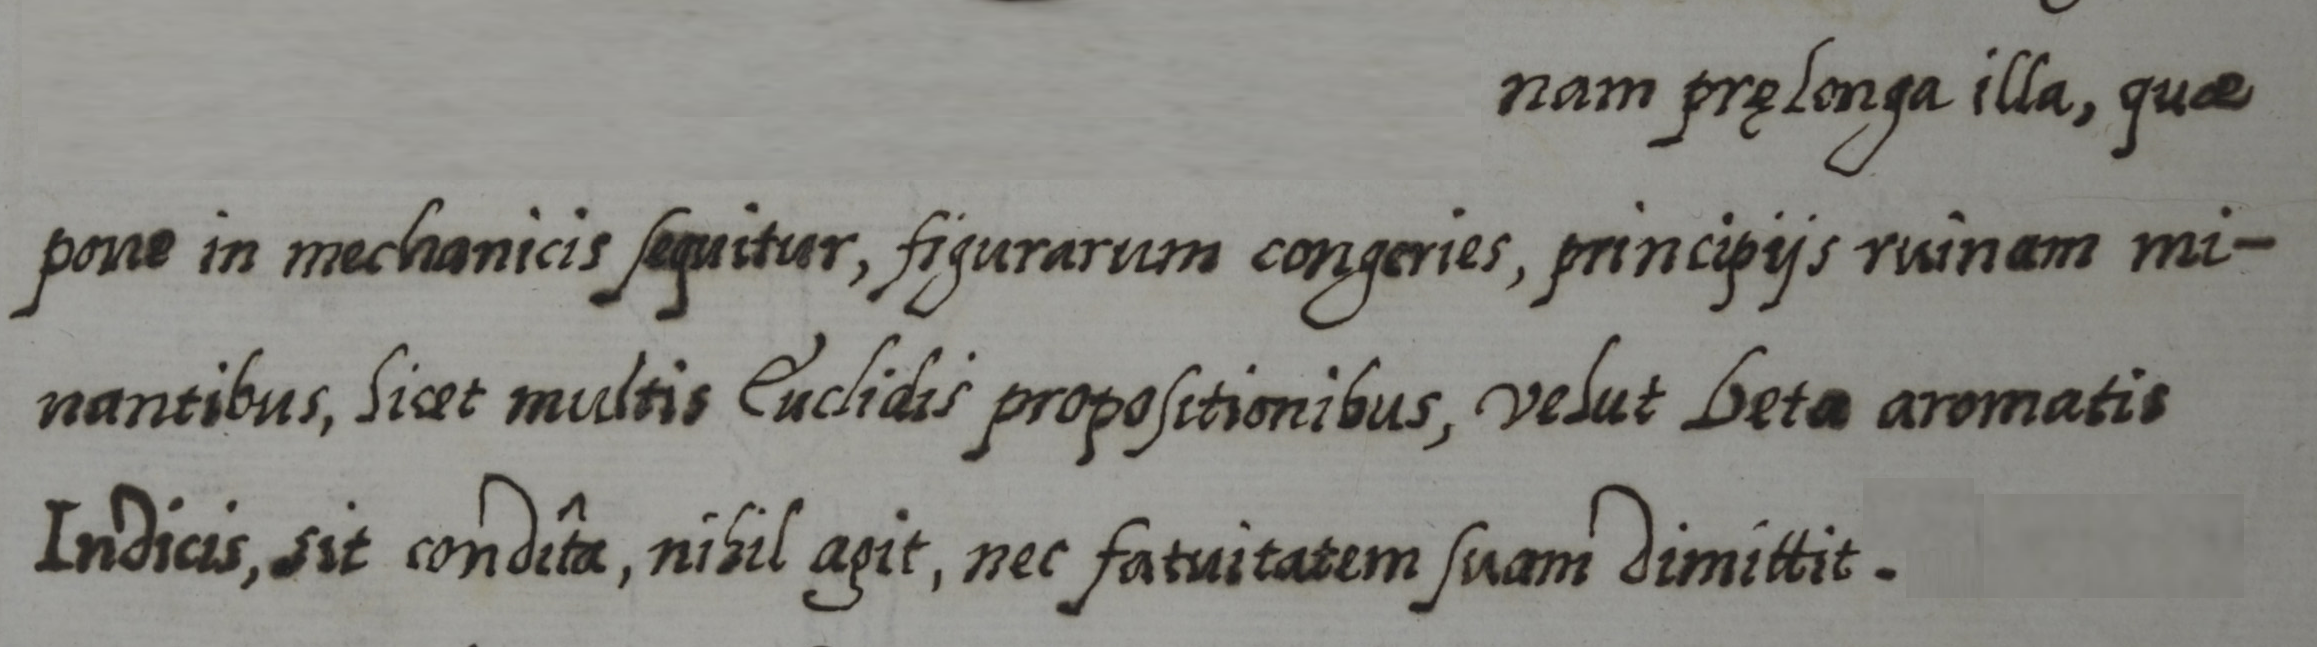 nam pręlonga illa, quæ
pone in mechanicis sequitur, figurarum congeries, principijs ruinam mi-
nantibus, licet multis Euclidis propositionibus, velut beta aromatis
Indicis, sit condita, nihil agit, nec fatuitatem suam dimittit.